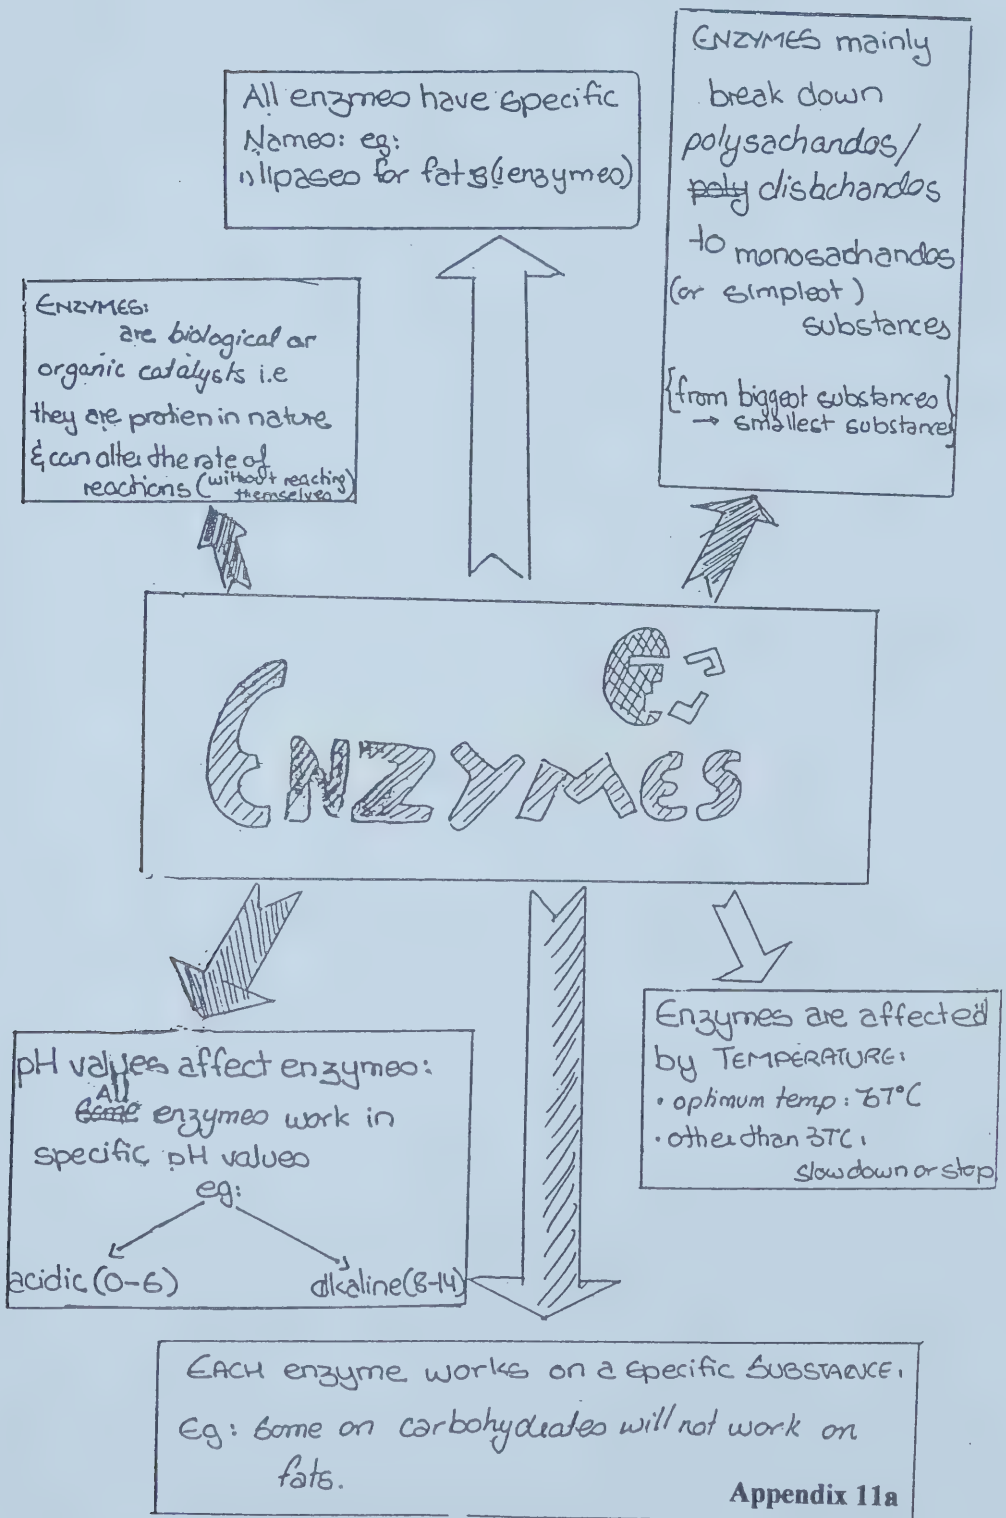 All enzymes have specific
Names: eg:
1) lipases for fats (enzymes)
ENZYMES mainly
break down
polysacharides/
poly disacharides
to monosacharides
(or simplest)
substances
{from biggest substances}
→ smallest substance
ENZYMES:
are biological or
organic catalysts i.e
they are protien in nature
& can alter the rate of
reactions (without reacting
themselves)
ENZYMES
pH values affect enzymes:
All
Some enzymes work in
specific pH values
eg:
acidic (0-6) alkaline (8-14)
Enzymes are affected
by TEMPERATURE:
• optimum temp: 37°C
• other than 37°C:
slow down or stop
EACH enzyme works on a specific SUBSTANCE.
Eg: Some on carbohydrates will not work on
fats.
Appendix 11a